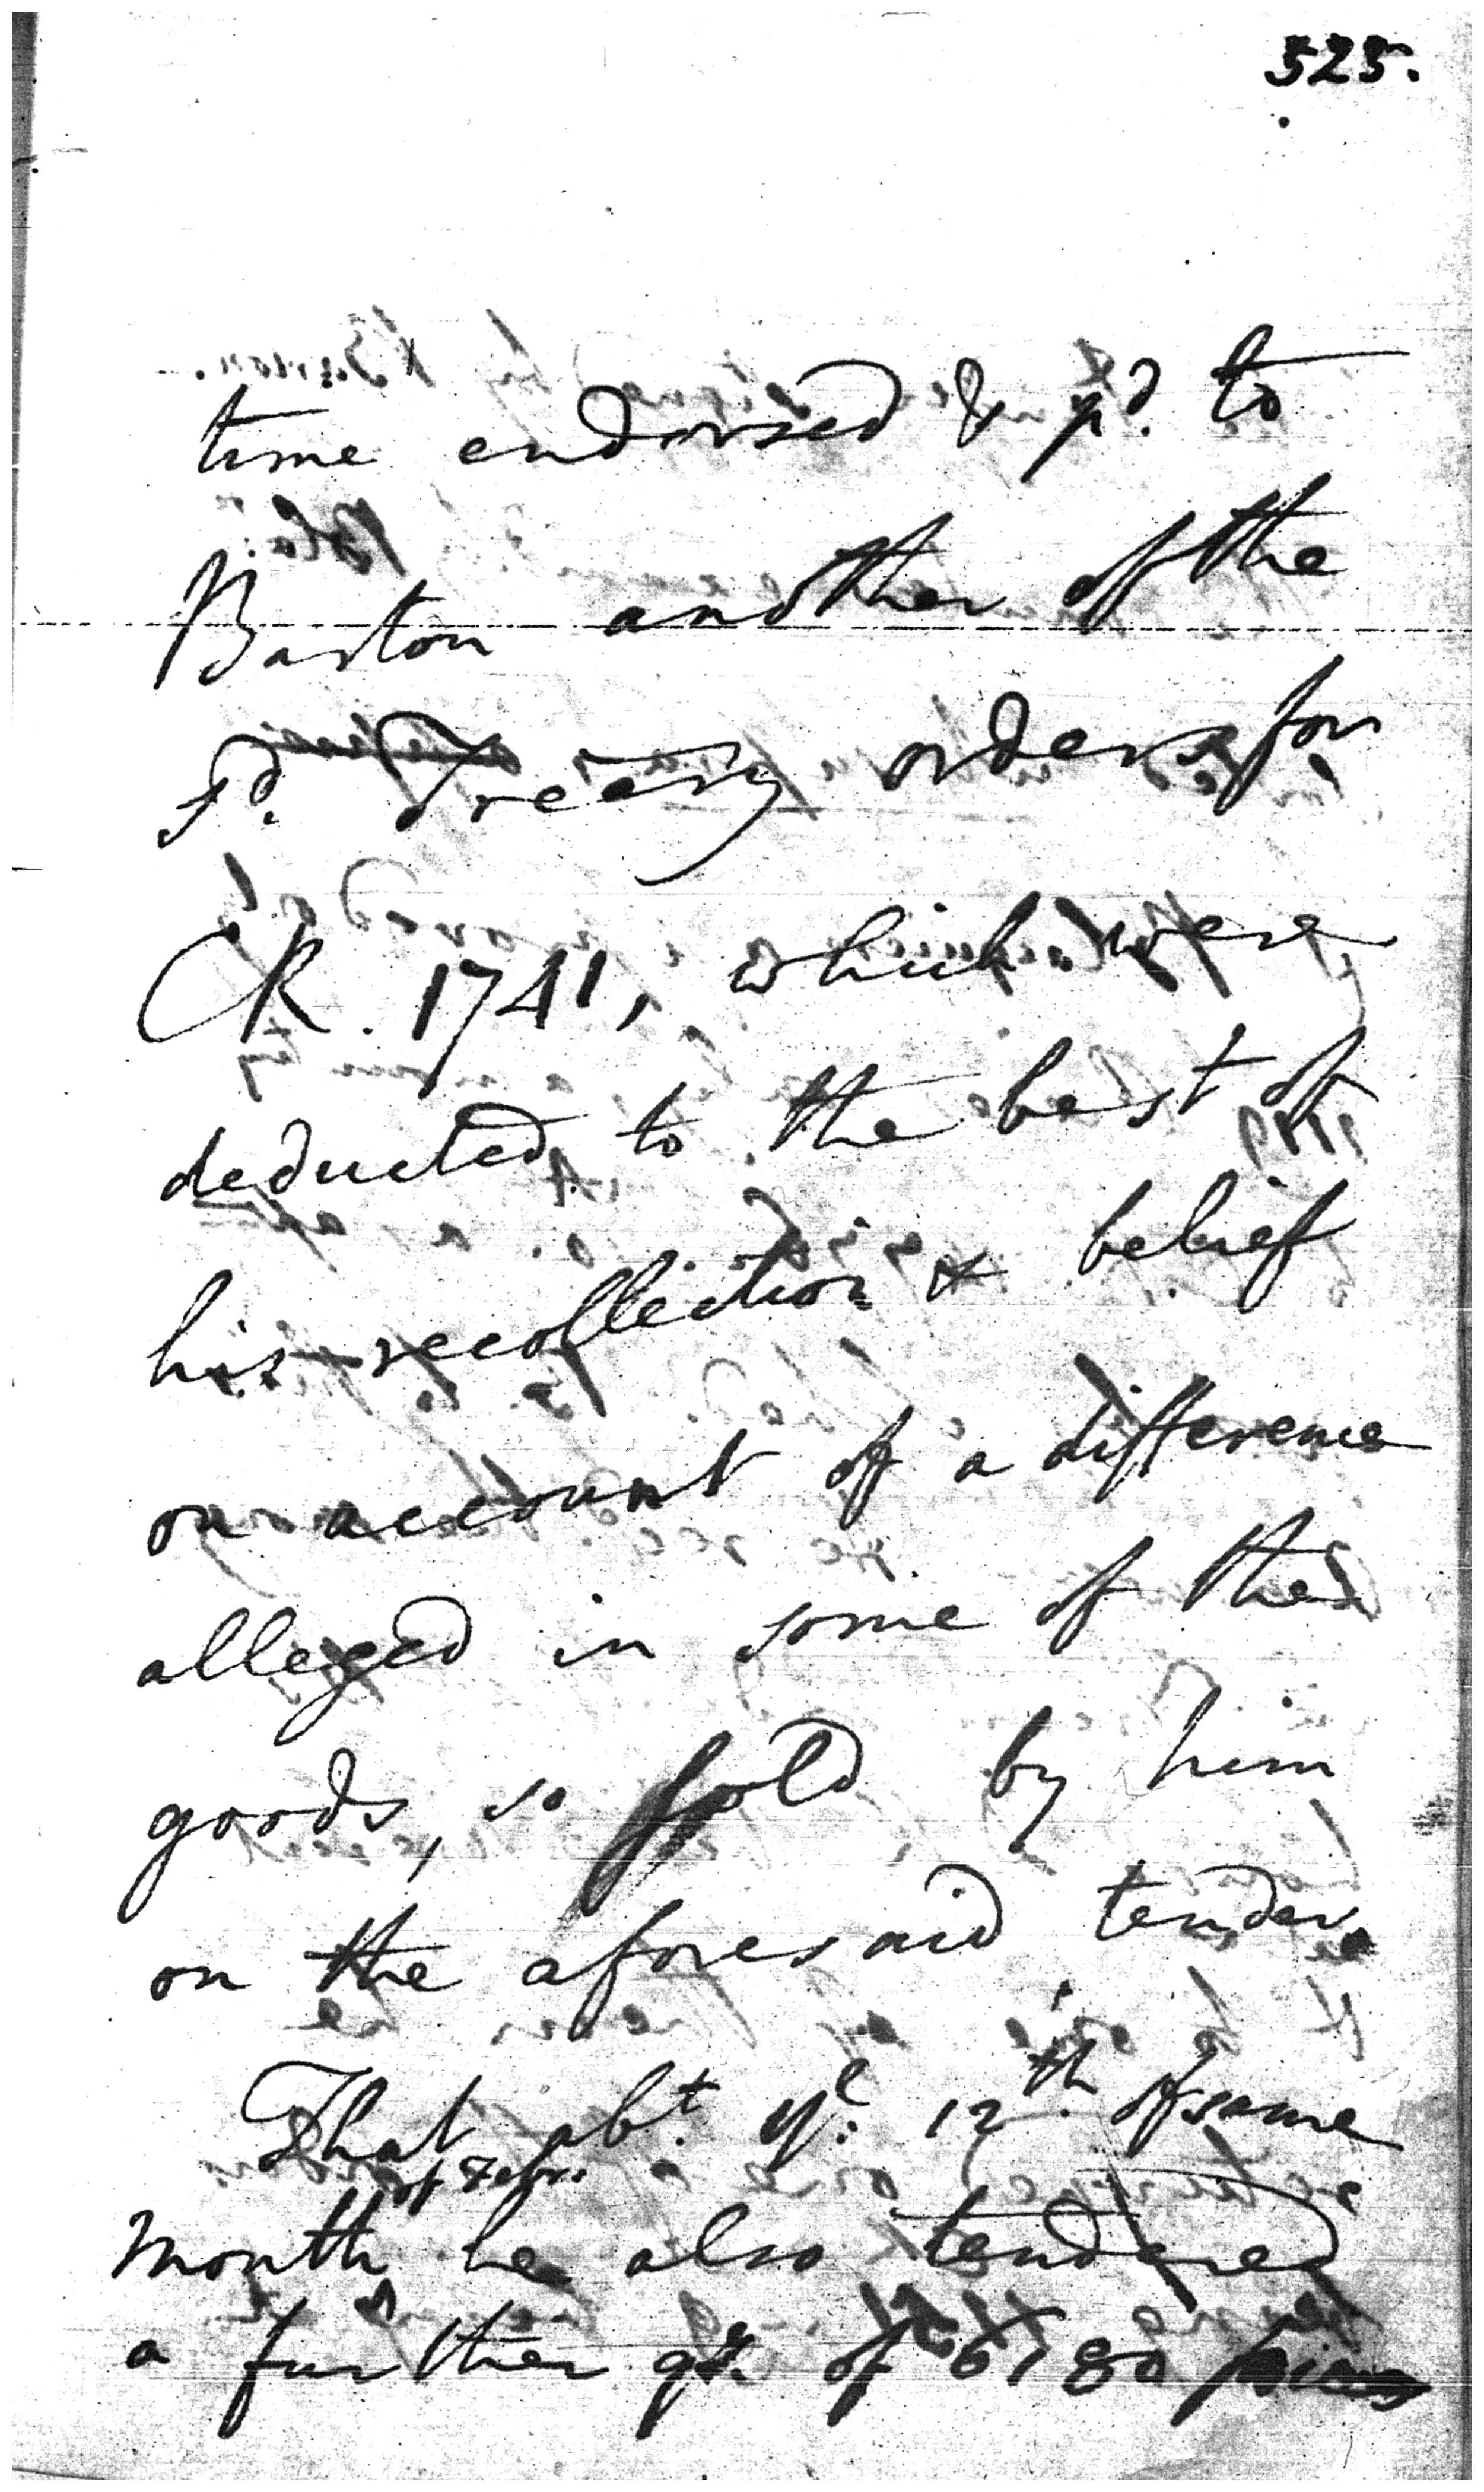 525.
time endorsed & pd. to
Barton another of the
sd. Treasy orders for
CR. 1741, which were
deducted to the best of
his recollection & belief
on account of a difference
alleged in some of the
goods, so sold by him
on the aforesaid tender.
That abt. ye. 12th. of same
of Febr.
month he also tendered
a further qy. of 6780 pieces